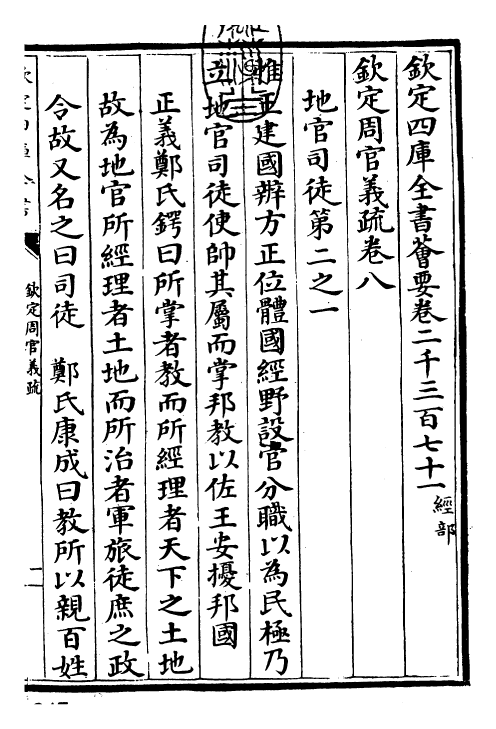 欽定四庫全書薈要卷二千三百七十一經部
欽定周官義疏卷八
地官司徒第二之一
惟王建國辨方正位體國經野設官分職以為民極乃
立地官司徒使帥其屬而掌邦教以佐王安擾邦國
正義鄭氏鍔曰所掌者教而所經理者天下之土地
故為地官所經理者土地而所治者軍旅徒庶之政
令故又名之曰司徒 鄭氏康成曰教所以親百姓
欽定周官義疏